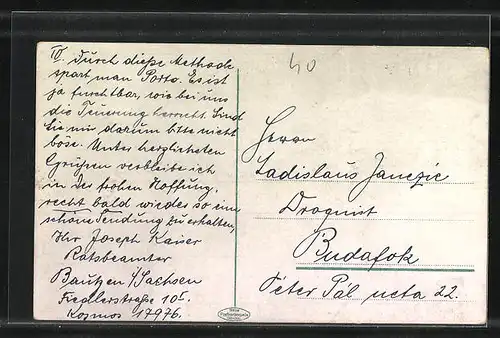 IV. Durch diese Methode
spart man Porto. Es ist
ja furchtbar, wie bei uns
die Teuerung herrscht. Sind
Sie mir darum bitte nicht
böse. Unter herzlichsten
Grüßen verbleibe ich
in der frohen Hoffnung,
recht bald wieder so eine
schöne Sendung zu erhalten,
Ihr Joseph Kaiser
Ratsbeamter
Bautzen i/Sachsen
Fiedlerstraße 10c.
Kosmos 17976.
40
Herrn
Ladislaus Janezic
Drogist
Budafok
Péter Pál ucta 22.